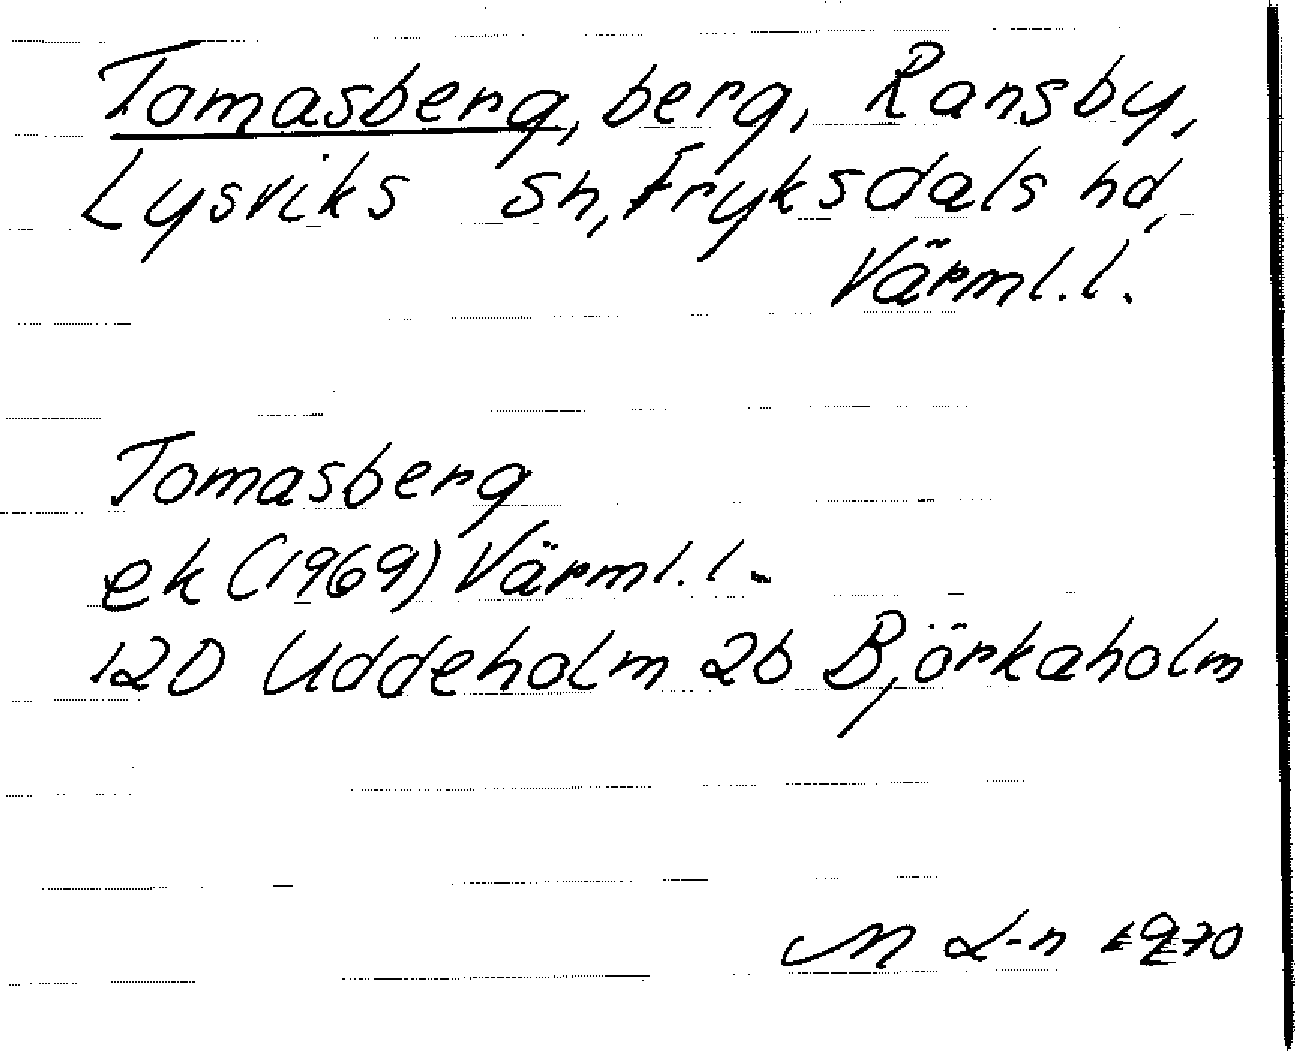 Tomasberg, berg, Ransby,
Lysviks sn, Fryksdals hd,
Värml. l.
Tomasberg
ek (1969) Värml. l.
12D Uddeholm 2b Björkaholm
M L-n 1970